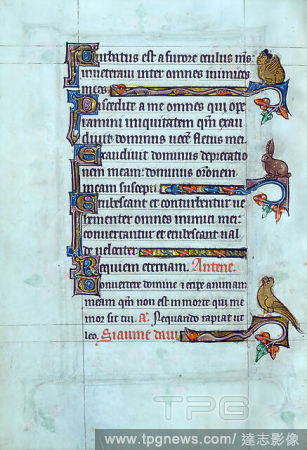 Turbatus est a furore oculus m̄s
inueteraui inter omnes inimicos
meos
Discedite a me omnes qui ope
ramini iniquitatem qm̄ exau
diuit dominus uocē fletus mei
Exaudiuit dominus deprecatio
nem meam: dominus orōnem
meam suscepit
Erubescant et conturbentur ue
hementer omnes inimici mei:
conuertantur et erubescant ual
de uelociter
Requiem eternam. Antene.
Conuertere domine et eripe animam
meam qm̄ non est in morte qui me
mor sit tui. A. Nequando rapiat ut
leo.
TPG
www.tpgnews.com/ 達志影像